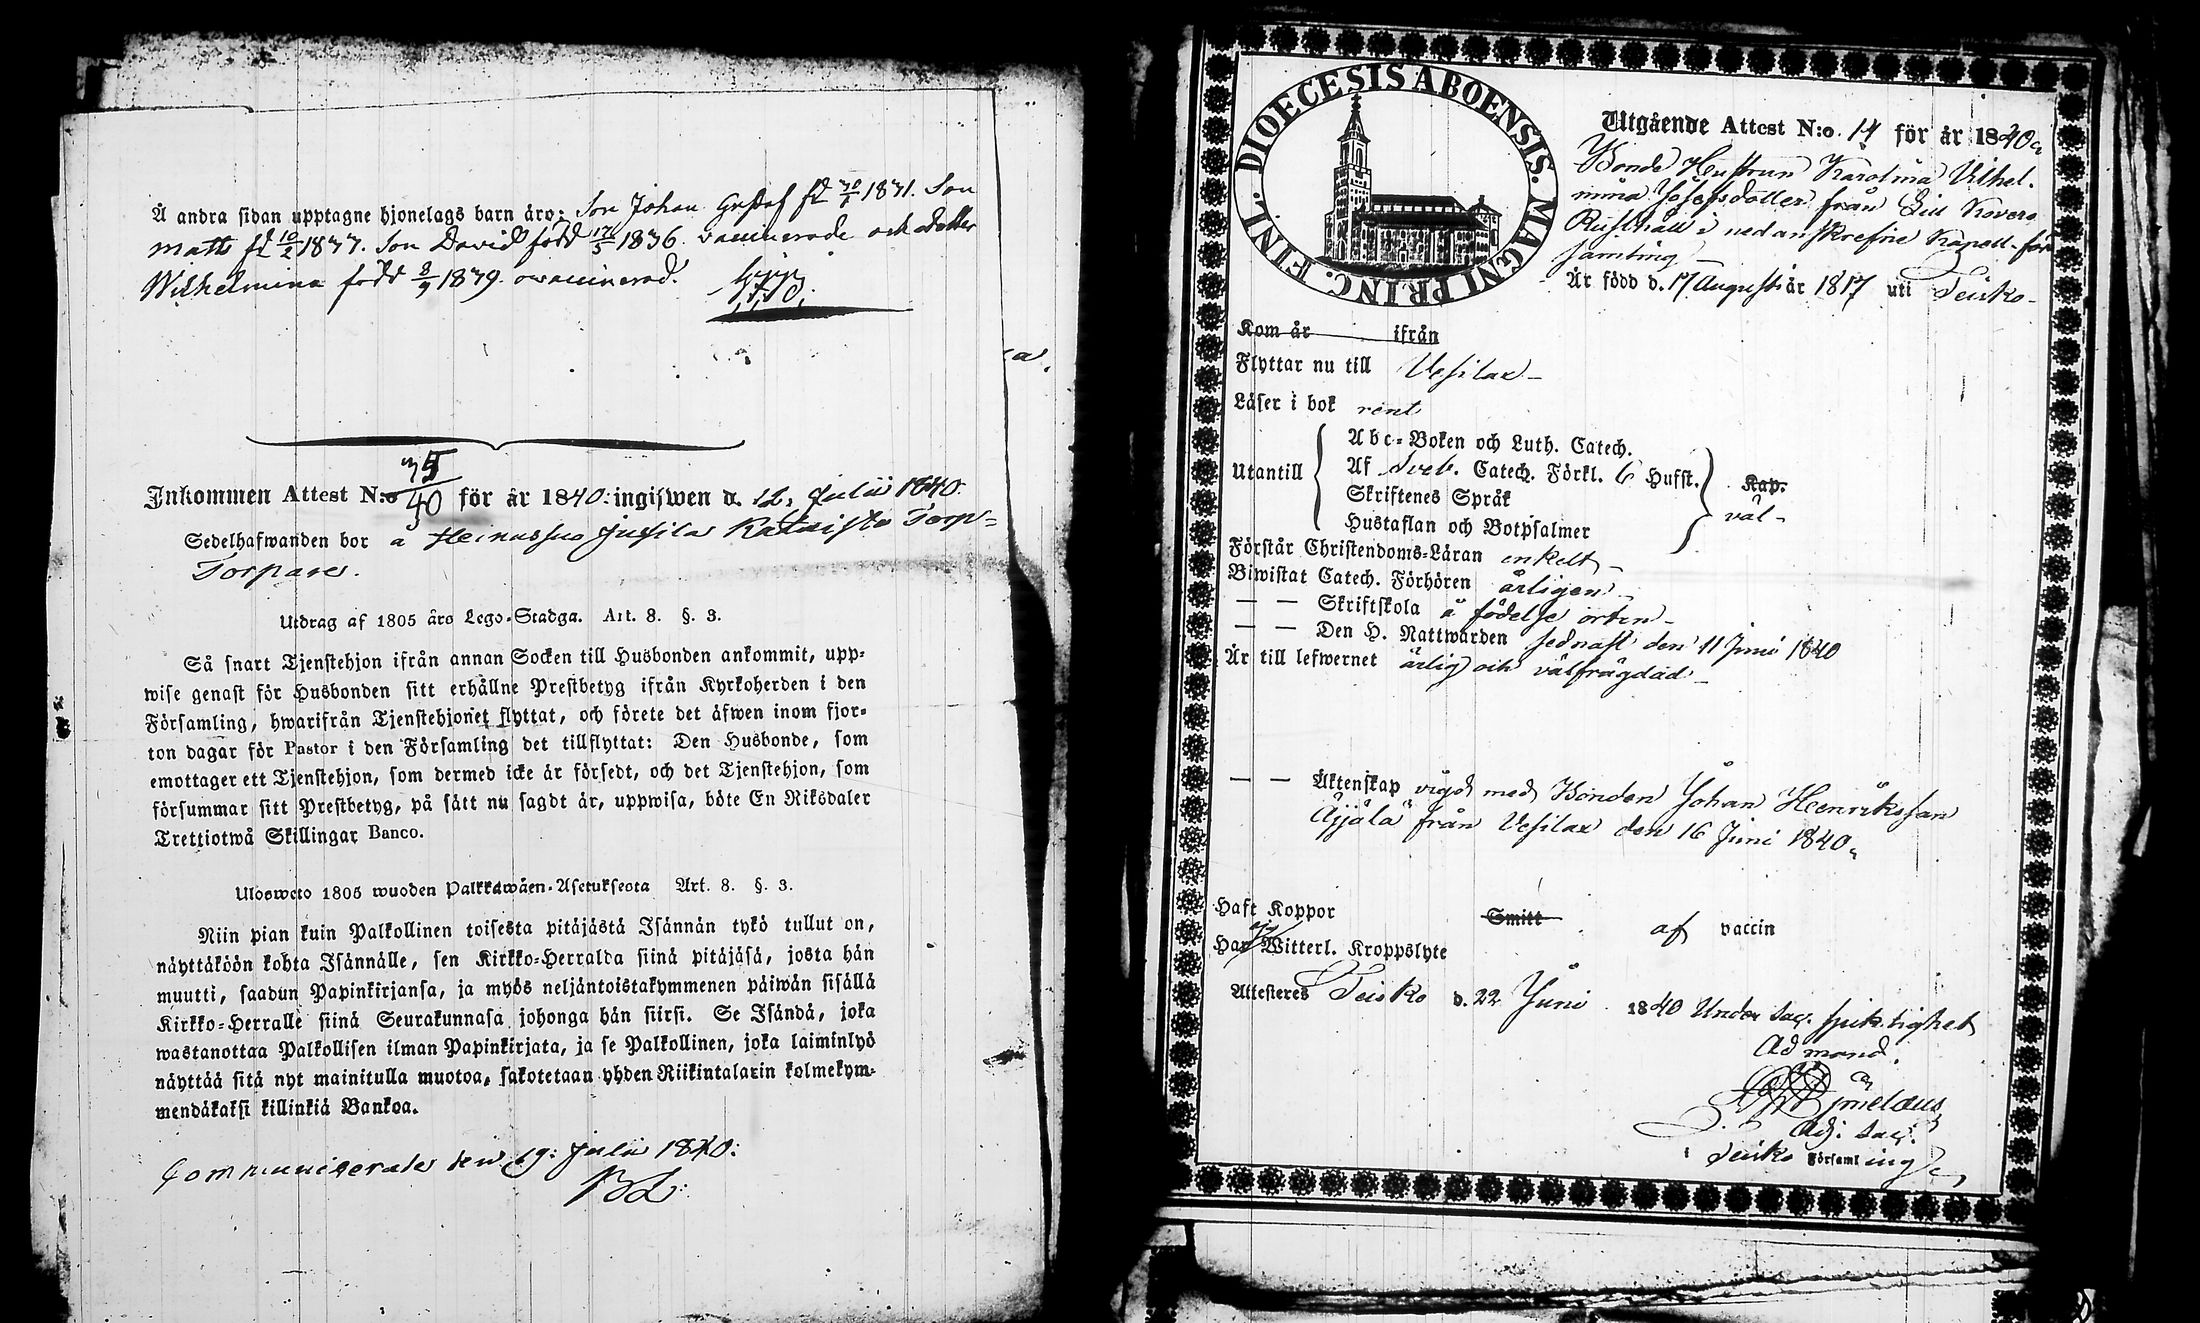 Å andra sidan upptagne hjonelags barn äro: Son Johan Gustaf fd 30/1 1831. Son
Matts fd 10/2 1833. Son David född 17/5 1836. vaccinerade och dotter
Wilhelmina född 8/9 1839. ovaccinerad.
Inkommen Attest N:o 35/40 för år 1840: ingifwen d. 12. Julii 1840.
Sedelhafwanden bor å Heinussuo Jussila Kataisto Torp=
Torpare.
Utdrag af 1805 års Lego-Stadga. Art. 8. §. 3.
Så snart Tjenstehjon ifrån annan Socken till Husbonden ankommit, upp-
wise genast för Husbonden sitt erhållne Prestbetyg ifrån Kyrkoherden i den
Församling, hwarifrån Tjenstehjonet flyttat, och förete det äfwen inom fjor-
ton dagar för Pastor i den Församling det tillflyttat: Den Husbonde, som
emottager ett Tjenstehjon, som dermed icke är försedt, och det Tjenstehjon, som
försummar sitt Prestbetyg, på sätt nu sagdt är, uppwisa, böte En Riksdaler
Trettiotwå Skillingar Banco.
Ulosweto 1805 wuoden Palkkawäen-Asetuksesta Art. 8. §. 3.
Niin pian kuin Palkollinen toisesta pitäjästä Isännän tykö tullut on,
näyttäköön kohta Isännälle, sen Kirkko-Herralda siinä pitäjäsä, josta hän
muutti, saadun Papinkirjansa, ja myös neljäntoistakymmenen päiwän sisällä
Kirkko-Herralle siinä Seurakunnasa johonga hän siirsi. Se Isändä, joka
wastanottaa Palkollisen ilman Papinkirjata, ja se Palkollinen, joka laiminlyö
näyttää sitä nyt mainitulla muotoa, sakotetaan yhden Riikintalarin kolmekym-
mendäkaksi killinkiä Bankoa.
Communicerades den 19: Julii 1840:
DIOECESIS ABOENSIS. MAGNI PRINC. FINL.
Utgående Attest N:o 14 för år 1840
Bonde Hustrun Karolina Vilhel-
mina Josefsdotter från Lill Kovero
Rusthåll i nedanskrefne Kapell-för
samling
Är född d. 17 Augusti år 1817 uti Teisko
Kom år ifrån
Flyttar nu till Vesilax
Läser i bok rent
Utantill
Abc-Boken och Luth. Catech.
Af Sveb. Catech. Förkl. 6 Hufst.
Skriftenes Språk
Hustaflan och Botpsalmer
Kap.
väl
Förstår Christendoms-Läran enkelt
Biwistat Catech. Förhören årligen
— — Skriftskola å födelse orten
— — Den H. Nattwarden sednast den 11 Juni 1840
Är till lefwernet ärlig och välfrägdad
— — Äktenskap vigd med Bonden Johan Henriksson
Äijälä från Vesilax den 16 Juni 1840
Haft Koppor Smitt af vaccin
Har ej Witterl. Kroppslyte
Attesteres Teisko d. 22 Juni 1840 Under Sac.
Adj. Sac.
i Teisko Församling